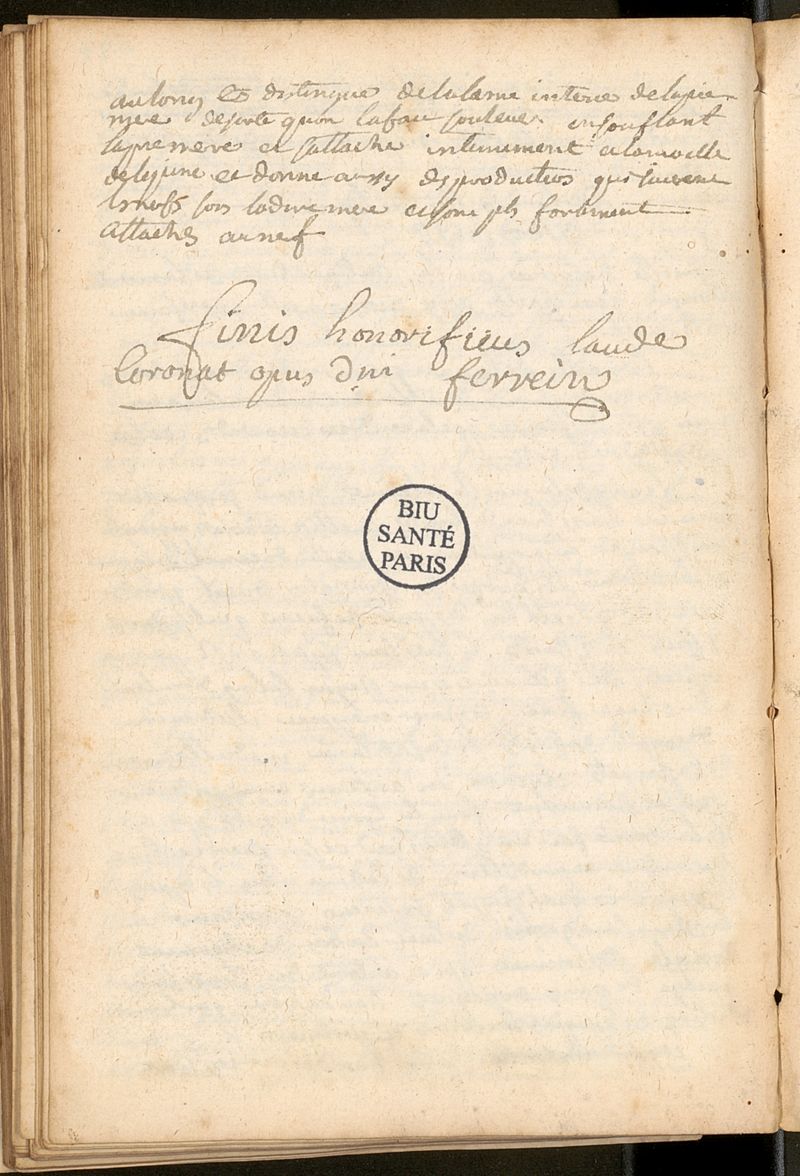 au long et distingue de la lame interne de la pie
mere de sorte quon la fait soulever en souflant
la pie mere et sattache intimement a la moille
de lepine et donne aussy des productios qui suivent
les nefs sous la dure mere et sont pls fortement
attachés au nef
Finis honorificus laude
Coronat opus Dni ferrein
BIU
SANTÉ
PARIS